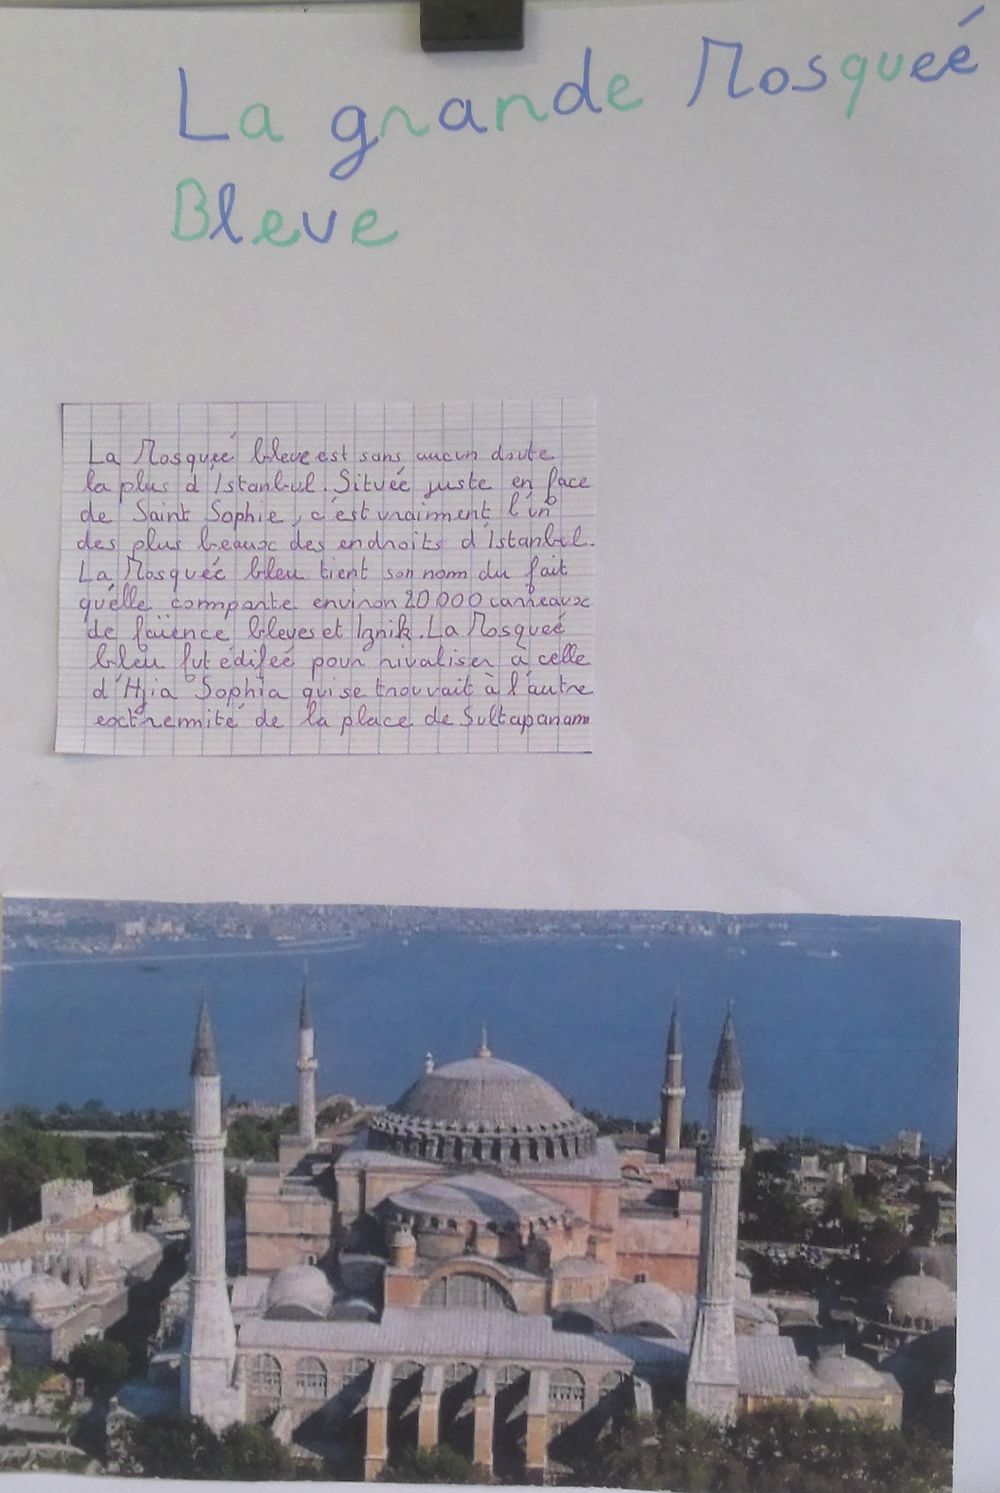 La grande Mosqueé
Bleue
La Mosqueé bleue est sans aucun doute
la plus d'istanbul. Situeé juste en face
de Saint Sophie, c'est vraiment l'un
des plus beaux des endroits d'istanbul.
La Mosqueé bleu tient son nom du fait
qu'elle comporte environ 20 000 carreaux
de faïence bleues et Iznik. La Mosqueé
bleu fut édifeé pour rivaliser à celle
d'Hjia Sophia qui se trouvait à l'autre
extrermité de la place de Sultapanam